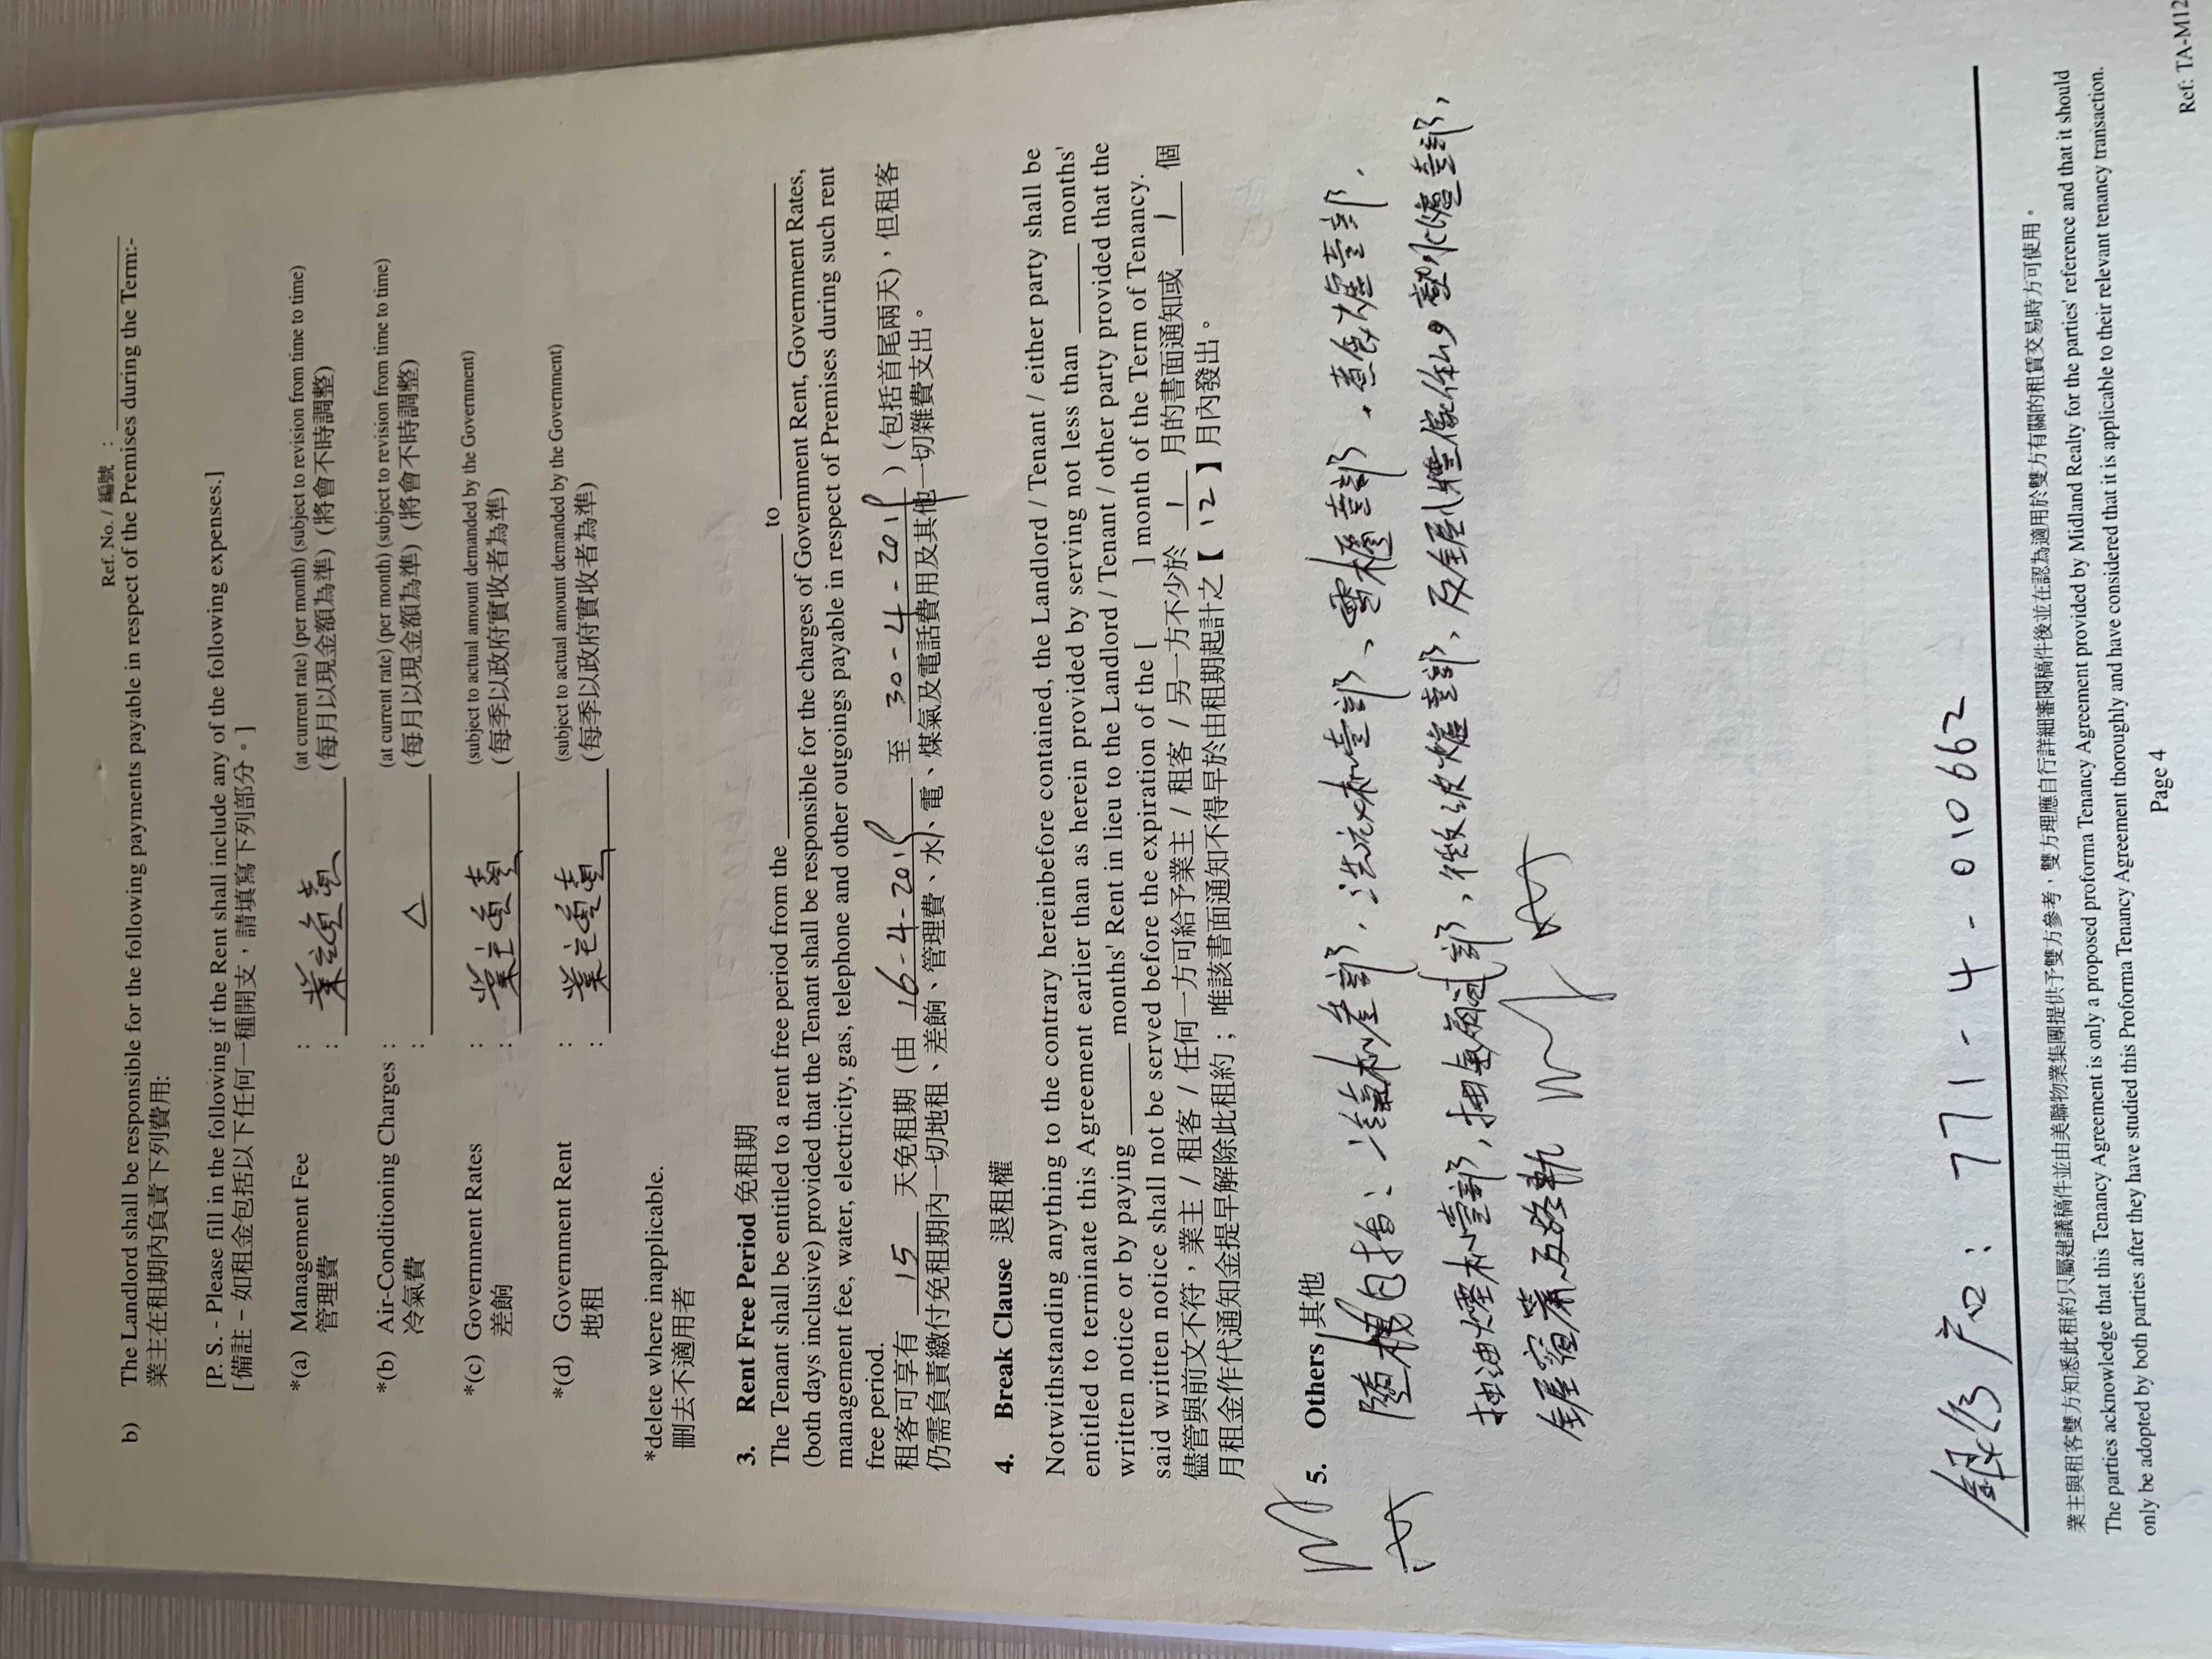 Ref. No. / 編號 :
b) The Landlord shall be responsible for the following payments payable in respect of the Premises during the Term:-
業主在租期內負責下列費用:
[P. S. - Please fill in the following if the Rent shall include any of the following expenses.]
[備註 – 如租金包括以下任何一種開支，請填寫下列部分。]
*(a) Management Fee : (at current rate) (per month) (subject to revision from time to time)
管理費 : 業主負責 (每月以現金額為準) (將會不時調整)
*(b) Air-Conditioning Charges : (at current rate) (per month) (subject to revision from time to time)
冷氣費 : △ (每月以現金額為準) (將會不時調整)
*(c) Government Rates : (subject to actual amount demanded by the Government)
差餉 : 業主負責 (每季以政府實收者為準)
*(d) Government Rent : (subject to actual amount demanded by the Government)
地租 : 業主負責 (每季以政府實收者為準)
*delete where inapplicable.
刪去不適用者
3. Rent Free Period 免租期
The Tenant shall be entitled to a rent free period from the to
(both days inclusive) provided that the Tenant shall be responsible for the charges of Government Rent, Government Rates,
management fee, water, electricity, gas, telephone and other outgoings payable in respect of Premises during such rent
free period.
租客可享有 15 天免租期 (由 16-4-2019 至 30-4-2019) (包括首尾兩天)，但租客
仍需負責繳付免租期內一切地租、差餉、管理費、水、電、煤氣及電話費用及其他一切雜費支出。
4. Break Clause 退租權
Notwithstanding anything to the contrary hereinbefore contained, the Landlord / Tenant / either party shall be
entitled to terminate this Agreement earlier than as herein provided by serving not less than months'
written notice or by paying months' Rent in lieu to the Landlord / Tenant / other party provided that the
said written notice shall not be served before the expiration of the [ ] month of the Term of Tenancy.
儘管與前文不符，業主 / 租客 / 任何一方可給予業主 / 租客 / 另一方不少於 1 月的書面通知或 1 個
月租金作代通知金提早解除此租約；唯該書面通知不得早於由租期起計之【12】月內發出。
5. Others 其他
隨樓包括：冷氣機叁部、洗衣機壹部、雪櫃壹部、煮食爐壹部、
抽油煙機壹部、抽氣扇 部、微波爐壹部、熱水爐壹部、
全屋窗簾
銀行戶口：771-4-010662
業主與租客雙方知悉此租約只屬建議稿件並由美聯物業集團提供予雙方參考，雙方理應自行詳細審閱稿件後並在認為適用於雙方有關的租賃交易時方可使用。
The parties acknowledge that this Tenancy Agreement is only a proposed proforma Tenancy Agreement provided by Midland Realty for the parties' reference and that it should
only be adopted by both parties after they have studied this Proforma Tenancy Agreement thoroughly and have considered that it is applicable to their relevant tenancy transaction.
Page 4
Ref: TA-M12